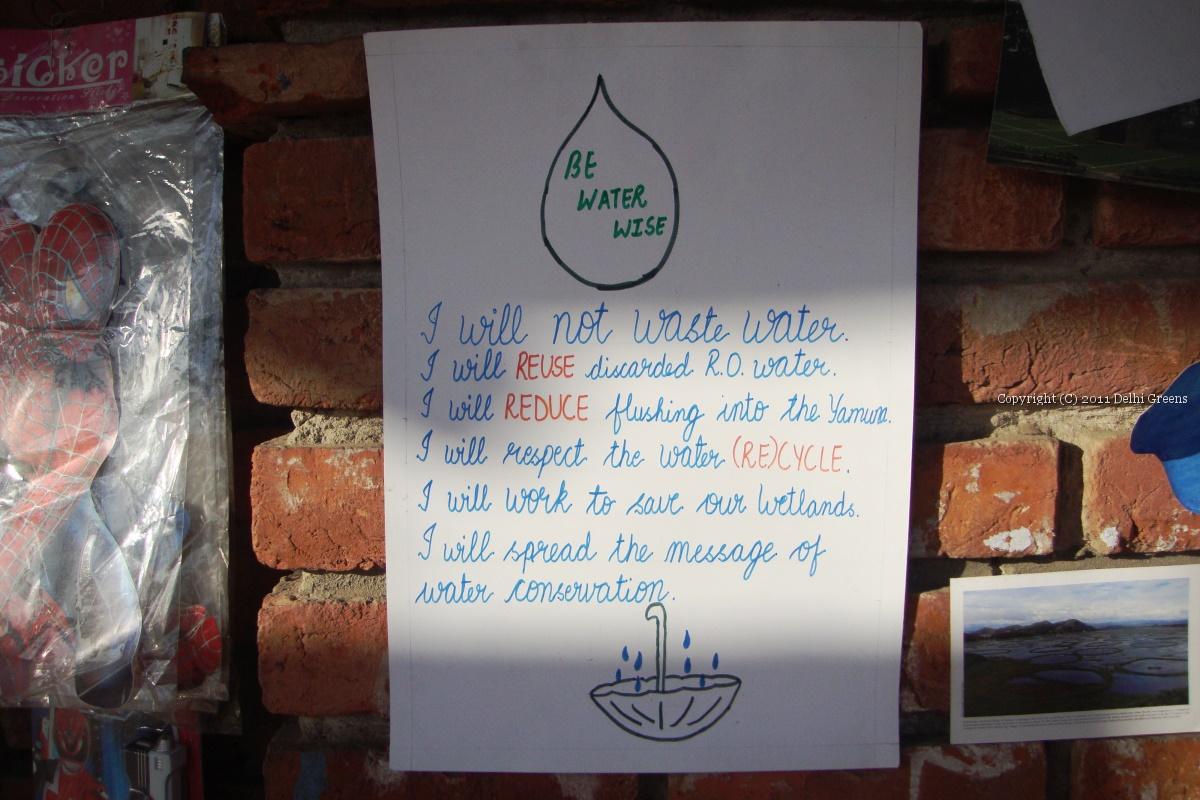 BE
WATER
WISE
I will not waste water.
I will REUSE discarded R.O. water.
I will REDUCE flushing into the Yamuna.
I will respect the water (RE)CYCLE.
I will work to save our Wetlands.
I will spread the message of
water conservation.
Copyright (C) 2011 Delhi Greens